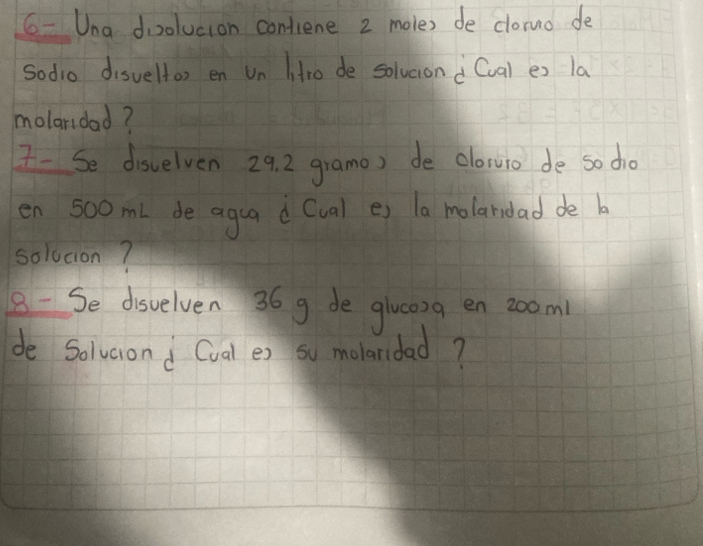 6- Una disolucion contiene 2 moles de cloruro de
sodio disueltos en un litro de solucion ¿Cual es la
molaridad?
7- Se disuelven 29.2 gramos de cloruro de sodio
en 500 mL de agua ¿Cual es la molaridad de la
solucion?
8- Se disuelven 36 g de glucosa en 200 ml
de Solucion ¿Cual es su molaridad?